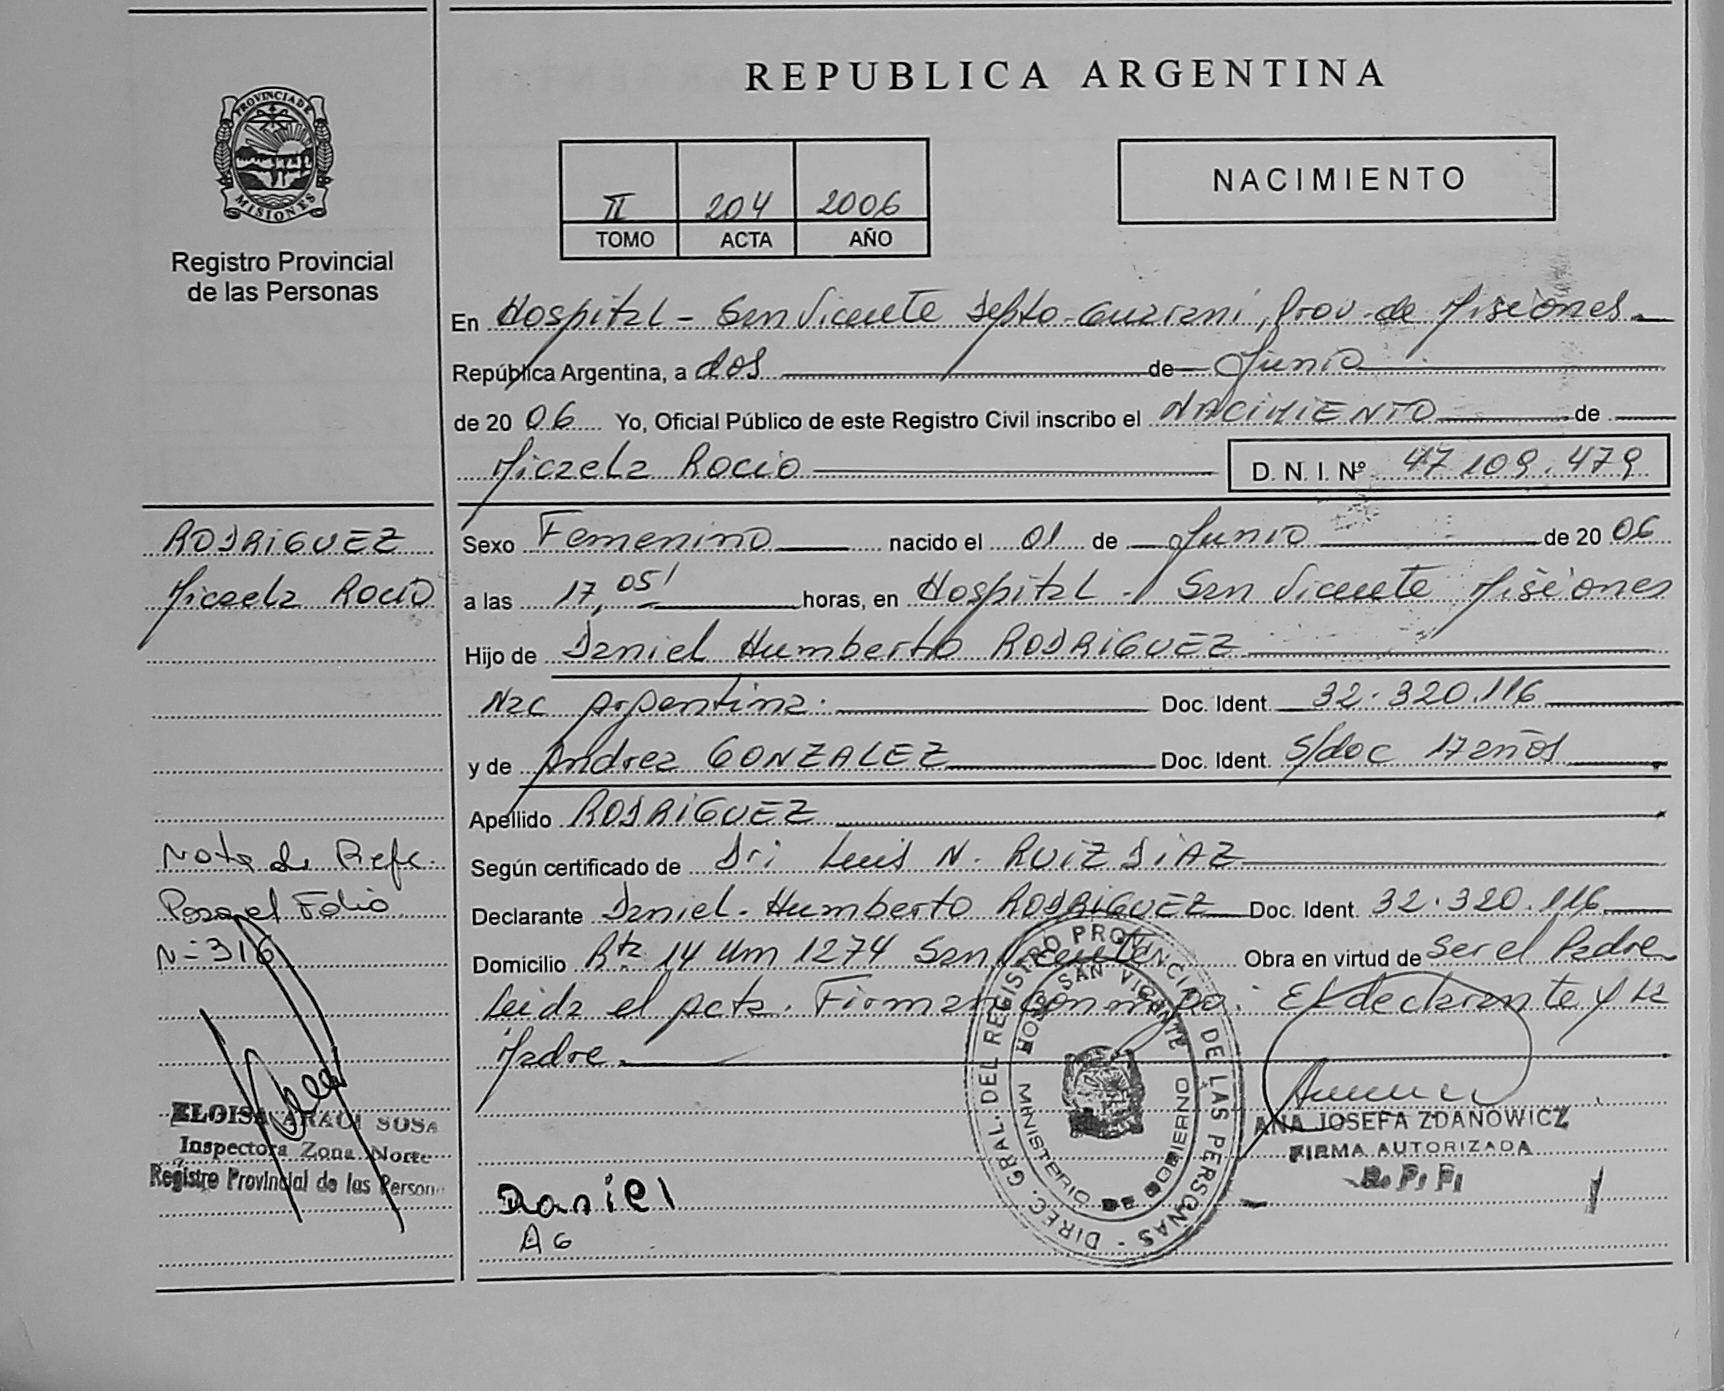 REPUBLICA ARGENTINA
PROVINCIA DE MISIONES
Registro Provincial
de las Personas
II 204 2006
TOMO ACTA AÑO
NACIMIENTO
En Hospital - San Vicente Depto Guarani, Prov. de Misiones
República Argentina, a dos de Junio
de 2006 Yo, Oficial Público de este Registro Civil inscribo el NACIMIENTO de
Micaela Rocio D. N. I. Nº 47109.479
RODRIGUEZ
Micaela Rocio
Sexo Femenino nacido el 01 de Junio de 2006
a las 17,05' horas, en Hospital - San Vicente Misiones
Hijo de Daniel Humberto RODRIGUEZ
Nac Argentina. Doc. Ident. 32.320.116
y de Andrea GONZALEZ Doc. Ident. S/doc 17 años
Apellido RODRIGUEZ
Según certificado de Dr. Luis N. RUIZ DIAZ
Declarante Daniel Humberto RODRIGUEZ Doc. Ident. 32.320.116
Domicilio Rta 14 Km 1274 San Vicente Obra en virtud de Ser el Padre
Leida el acta. Firman conmigo: El declarante y la
Madre.
Nota de Refe.
Para el Folio
N- 316
ELOISA ARAUJ SOSA
Inspectora Zona Norte
Registro Provincial de las Person
DIREC. GRAL. DEL REGISTRO PROVINCIAL DE LAS PERSONAS
HOSP. SAN VICENTE
MINISTERIO DE GOBIERNO
ANA JOSEFA ZDANOWICZ
FIRMA AUTORIZADA
R. P. P.
Daniel
A G